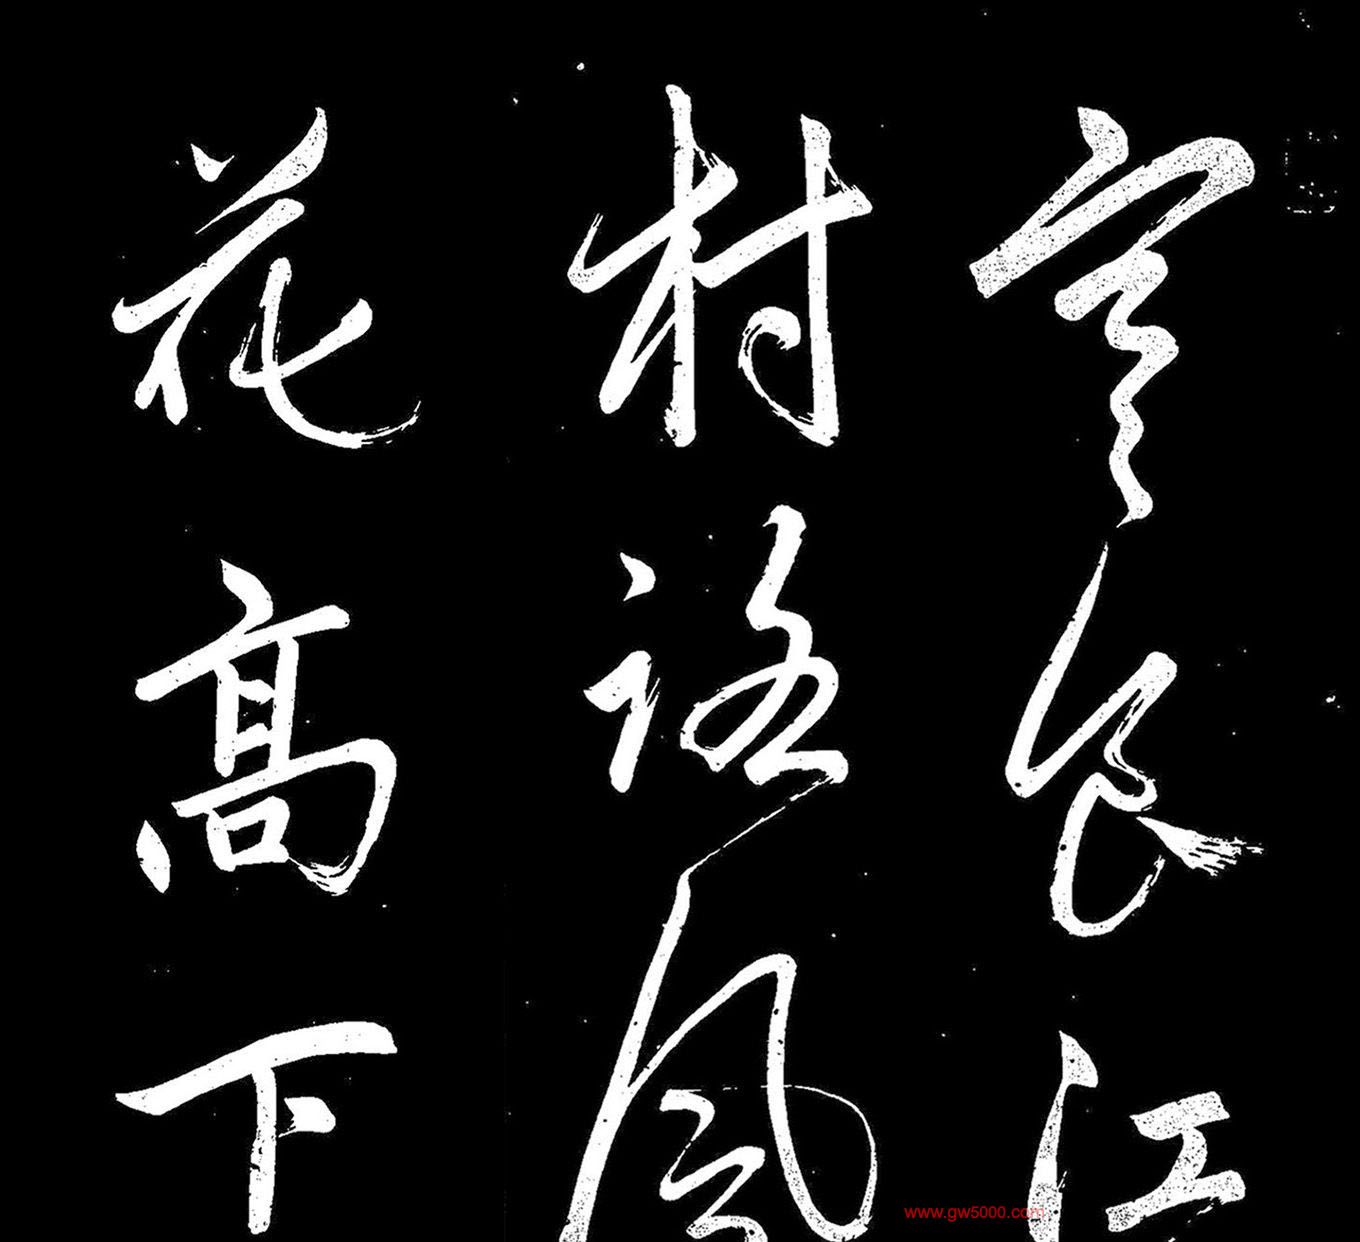 寒食江
村路風
花高下
www.gw5000.com